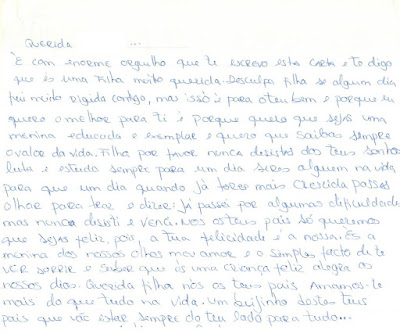 Querida ...
È com enorme orgulho que te escrevo esta carta e te digo
que és uma filha muito querida. Desculpa filha se algum dia
fui muito rigida contigo, mas isso é para o teu bem e porque eu
quero o melhor para ti e porque quero que sejas uma
menina educada e exemplar e quero que saibas sempre
o valor da vida. Filha por favor nunca desistas dos teus sonhos
luta e estuda sempre para um dia seres alguem na vida
para que um dia quando já fores mais crescida possas
olhar para trás e dizer: Já passei por algumas dificuldades
mas nunca desisti e venci. Nós os teus pais só queremos
que sejas feliz, pois, a tua felicidade é a nossa. És a
menina dos nossos olhos meu amor e o simples facto de te
ver sorrir e saber que és uma criança feliz alegra os
nossos dias. Querida filha nós os teus pais Amamos-te
mais do que tudo na vida. Um beijinho destes teus
pais que vão estar sempre do teu lado para tudo...